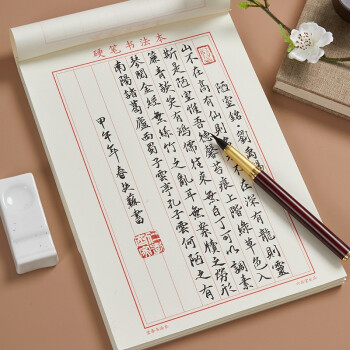 硬笔书法本
陋室銘 劉禹錫
山不在高有仙則名水在深有龍則靈
斯是陋室惟吾德馨苔痕上階綠草色入
簾青談笑有鴻儒往來無白丁可以調素
琴閱金經無絲竹之亂耳無案牘之勞形
南陽諸葛廬西蜀子雲亭孔子云何陋之有
甲午年春
書